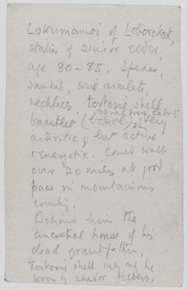 Lokumanios of Loborokok,
status of senior elder,
age 80-85. Spear,
sandal, wire armlets,
necklace, tortoise shell
bracelet (
arthritic, but active
& energetic. Could walk
over 20 miles at good
pace in mountainous
country.
Behind him the
ancestral house of his
dead grandfather,
Tortoise shell may only be
worn by senior elders.